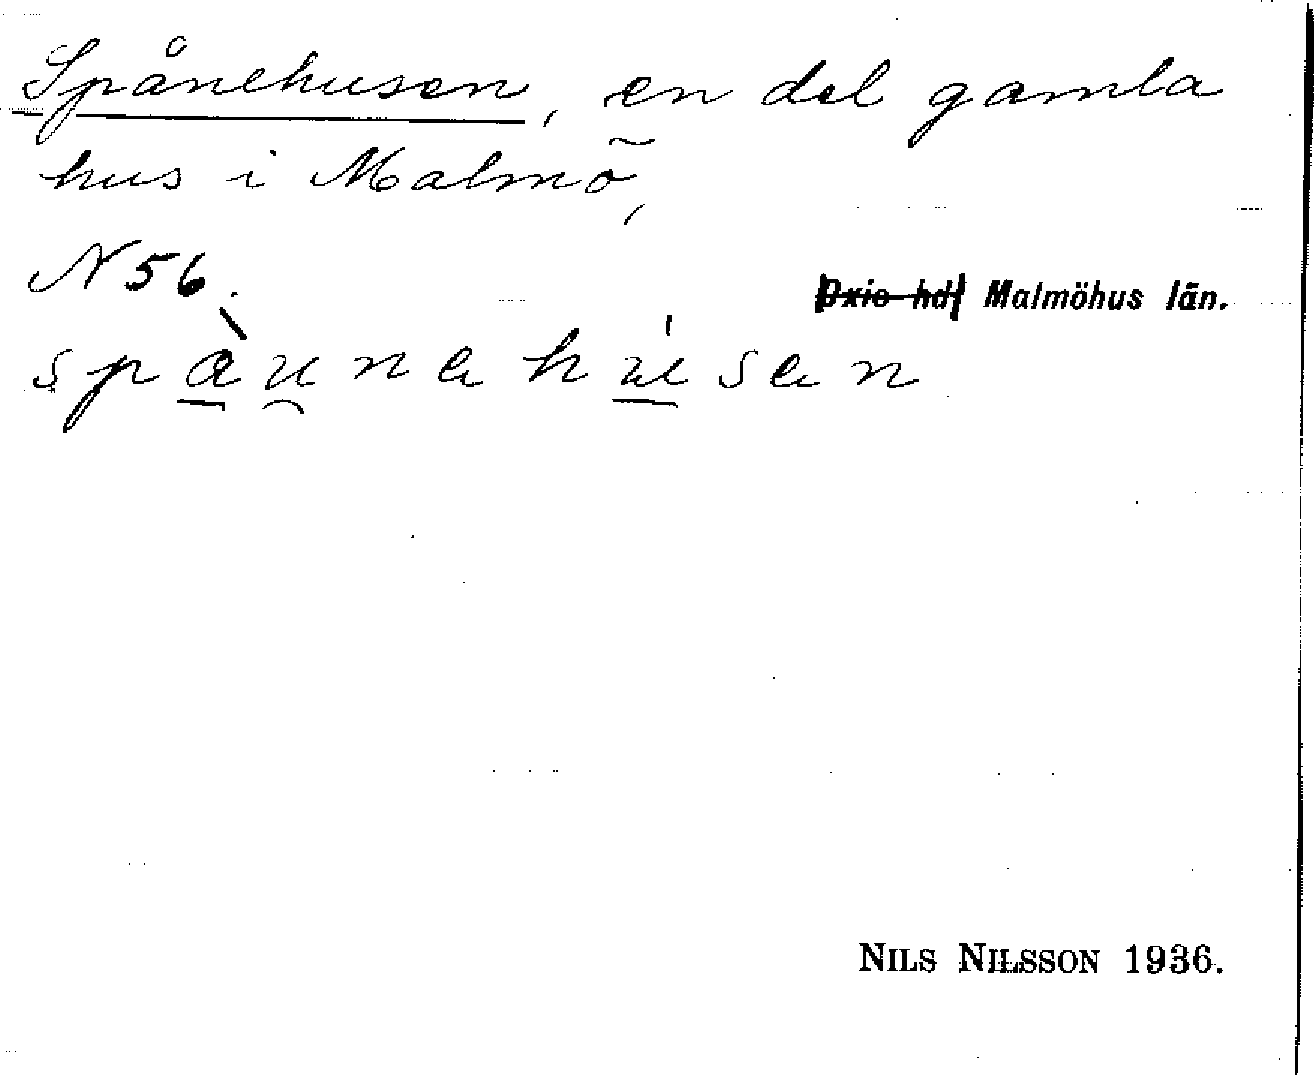 Spånehusen, en del gamla
hus i Malmö,
N 56.
Oxie hd Malmöhus län.
NILS NILSSON 1936.